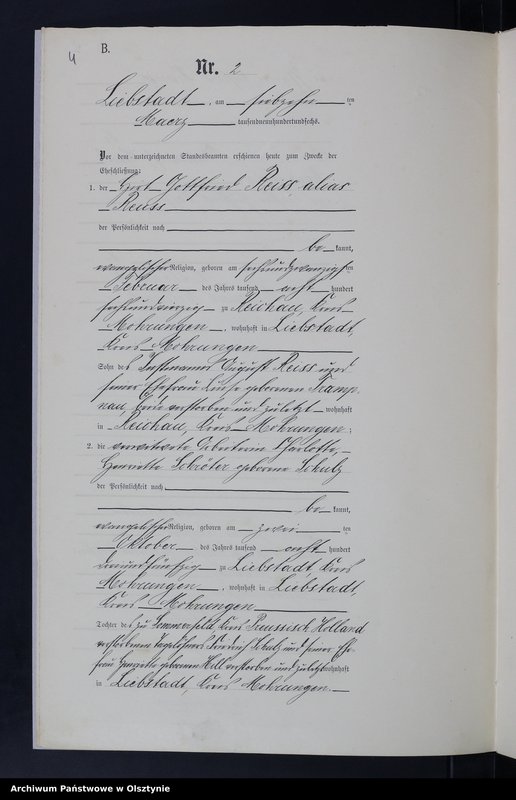 4
B.
Nr. 2
Liebstadt, am siebzehn ten
Maerz tausendneunhundertundsechs.
Vor dem unterzeichneten Standesbeamten erschienen heute zum Zwecke der
Eheschließung:
1. der Gottfried Reiss alias
Reuss
der Persönlichkeit nach
be kannt,
evangelischer Religion, geboren am sechsundzwanzigsten
Februar des Jahres tausend acht hundert
zu Reichau, Kreis
Mohrungen, wohnhaft in Liebstadt,
Kreis Mohrungen
Sohn des Instmanns August Reiss und
seiner Ehefrau Luise geborenen
beide verstorben und zuletzt wohnhaft
in Reichau, Kreis Mohrungen;
2. die verwitwete Arbeiterin Charlotte
Henriette Schröter geborene Schulz
der Persönlichkeit nach
be kannt,
evangelischer Religion, geboren am zwei ten
Oktober des Jahres tausend acht hundert
zu Liebstadt Kreis
Mohrungen, wohnhaft in Liebstadt,
Kreis Mohrungen
Tochter des zu Sommerfeld Kreis Preussisch Holland
verstorbenen Tagelöhners Friedrich Schulz und seiner Ehe-
frau Henriette geborenen Hill verstorben und zuletzt wohnhaft
in Liebstadt, Kreis Mohrungen.
Archiwum Państwowe w Olsztynie